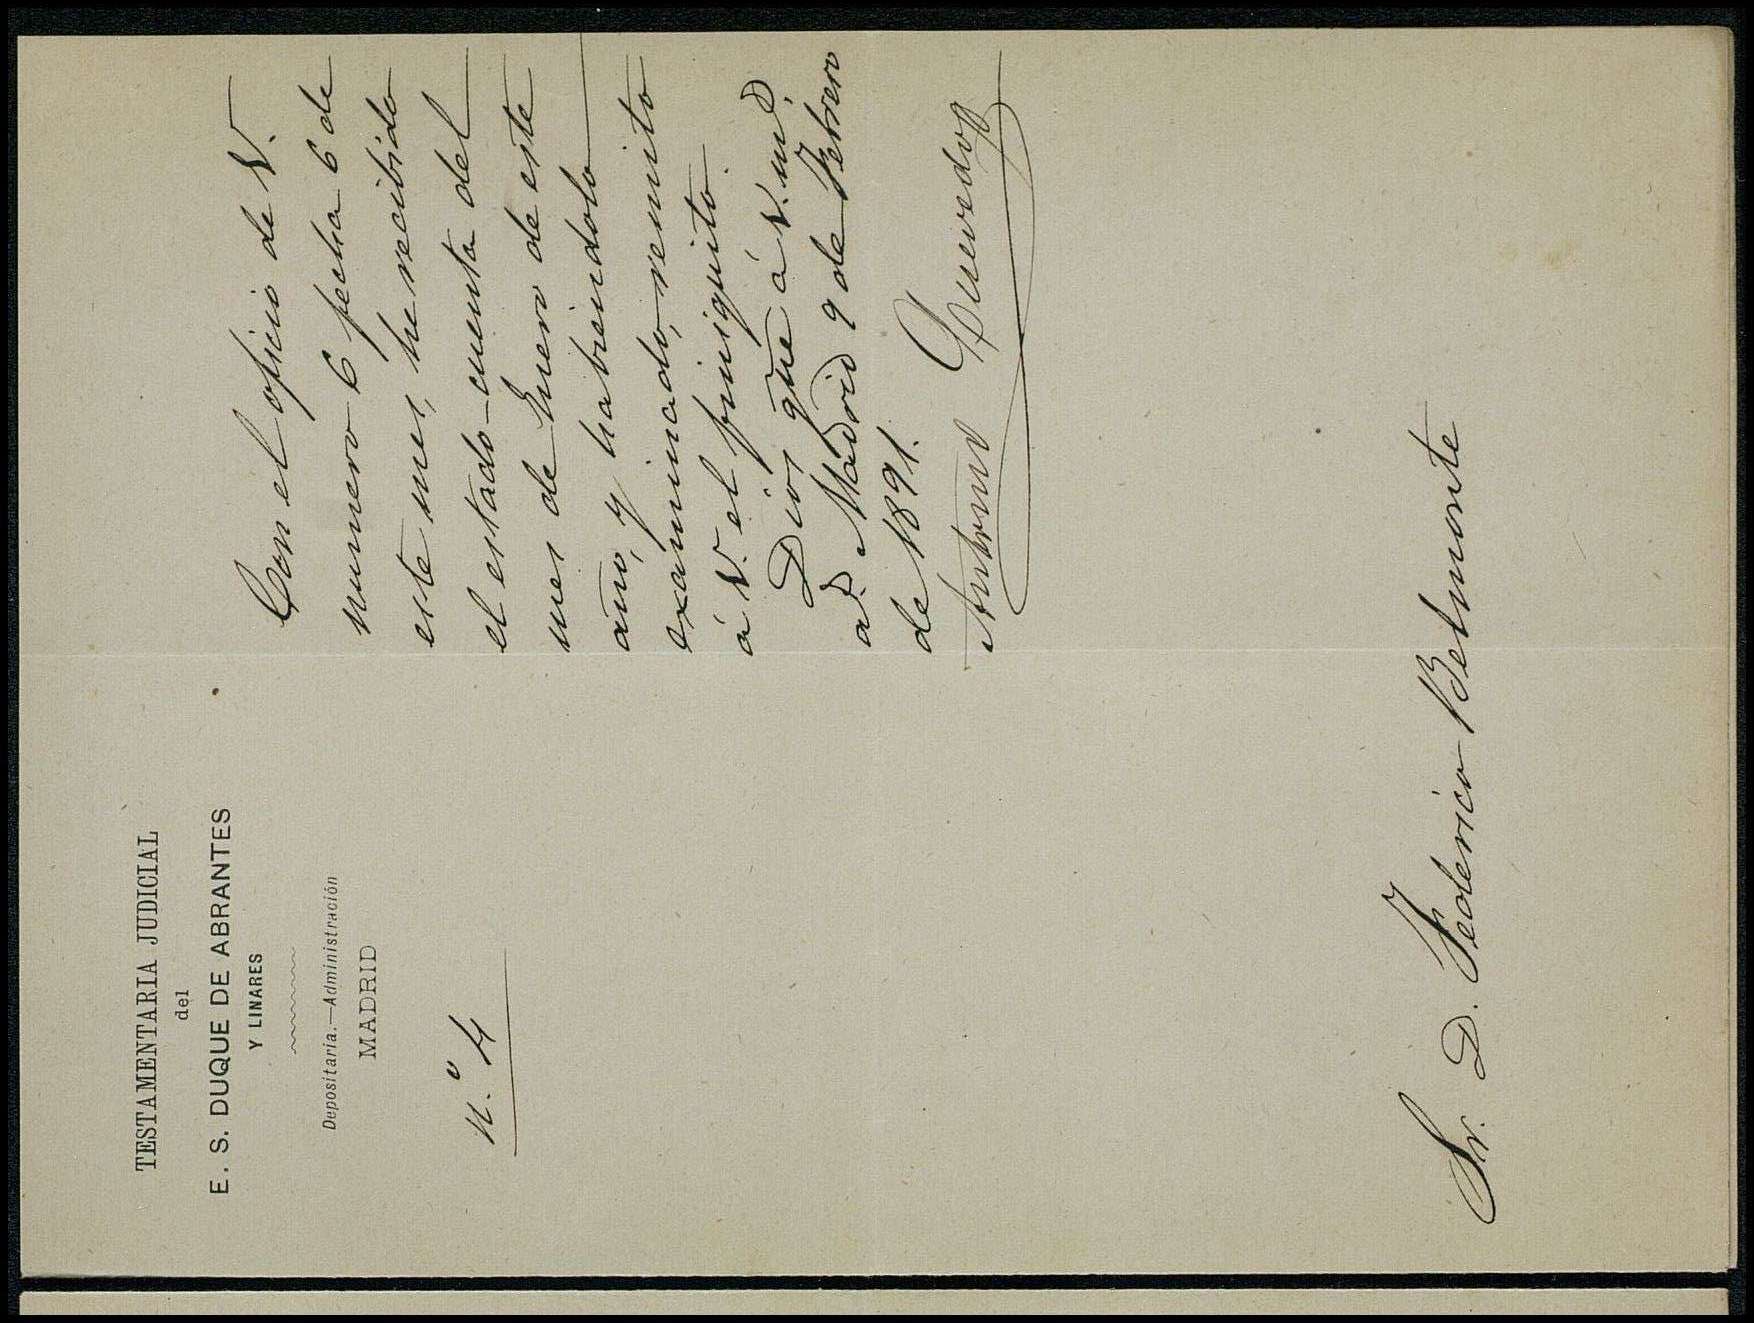 TESTAMENTARIA JUDICIAL
del
E. S. DUQUE DE ABRANTES
Y LINARES
Depositaria.—Administración
MADRID
N.º 4
Con el oficio de V.
numero 6 fecha 6 de
este mes, he recibido
el estado-cuenta del
mes de Enero de este
año, y habiendolo
examinado, remito
á V. el finiquito.
Dios gue á V. ms
as. Madrid 9 de Febrero
de 1891.
Antonio Quevedo
Sr. D. Federico Belmonte